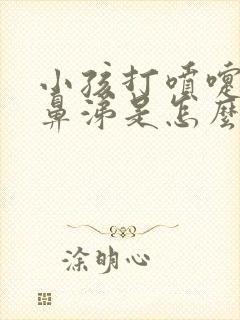 小孩打喷嚏
鼻涕是怎麼
涂明心